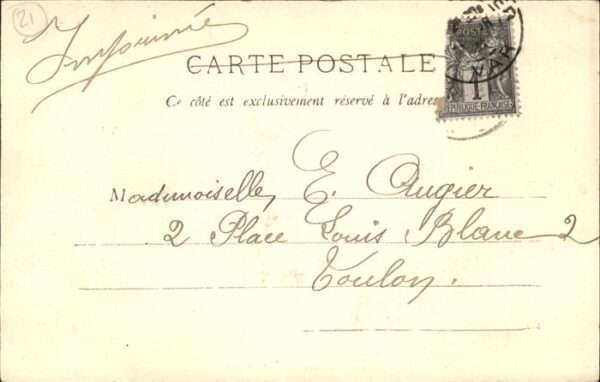 21
Imprimée
CARTE POSTALE
Ce côté est exclusivement réservé à l'adres
VAR
1
RÉPUBLIQUE FRANÇAISE
Mademoiselle E. Augier
2 Place Louis Blanc 2
Toulon.